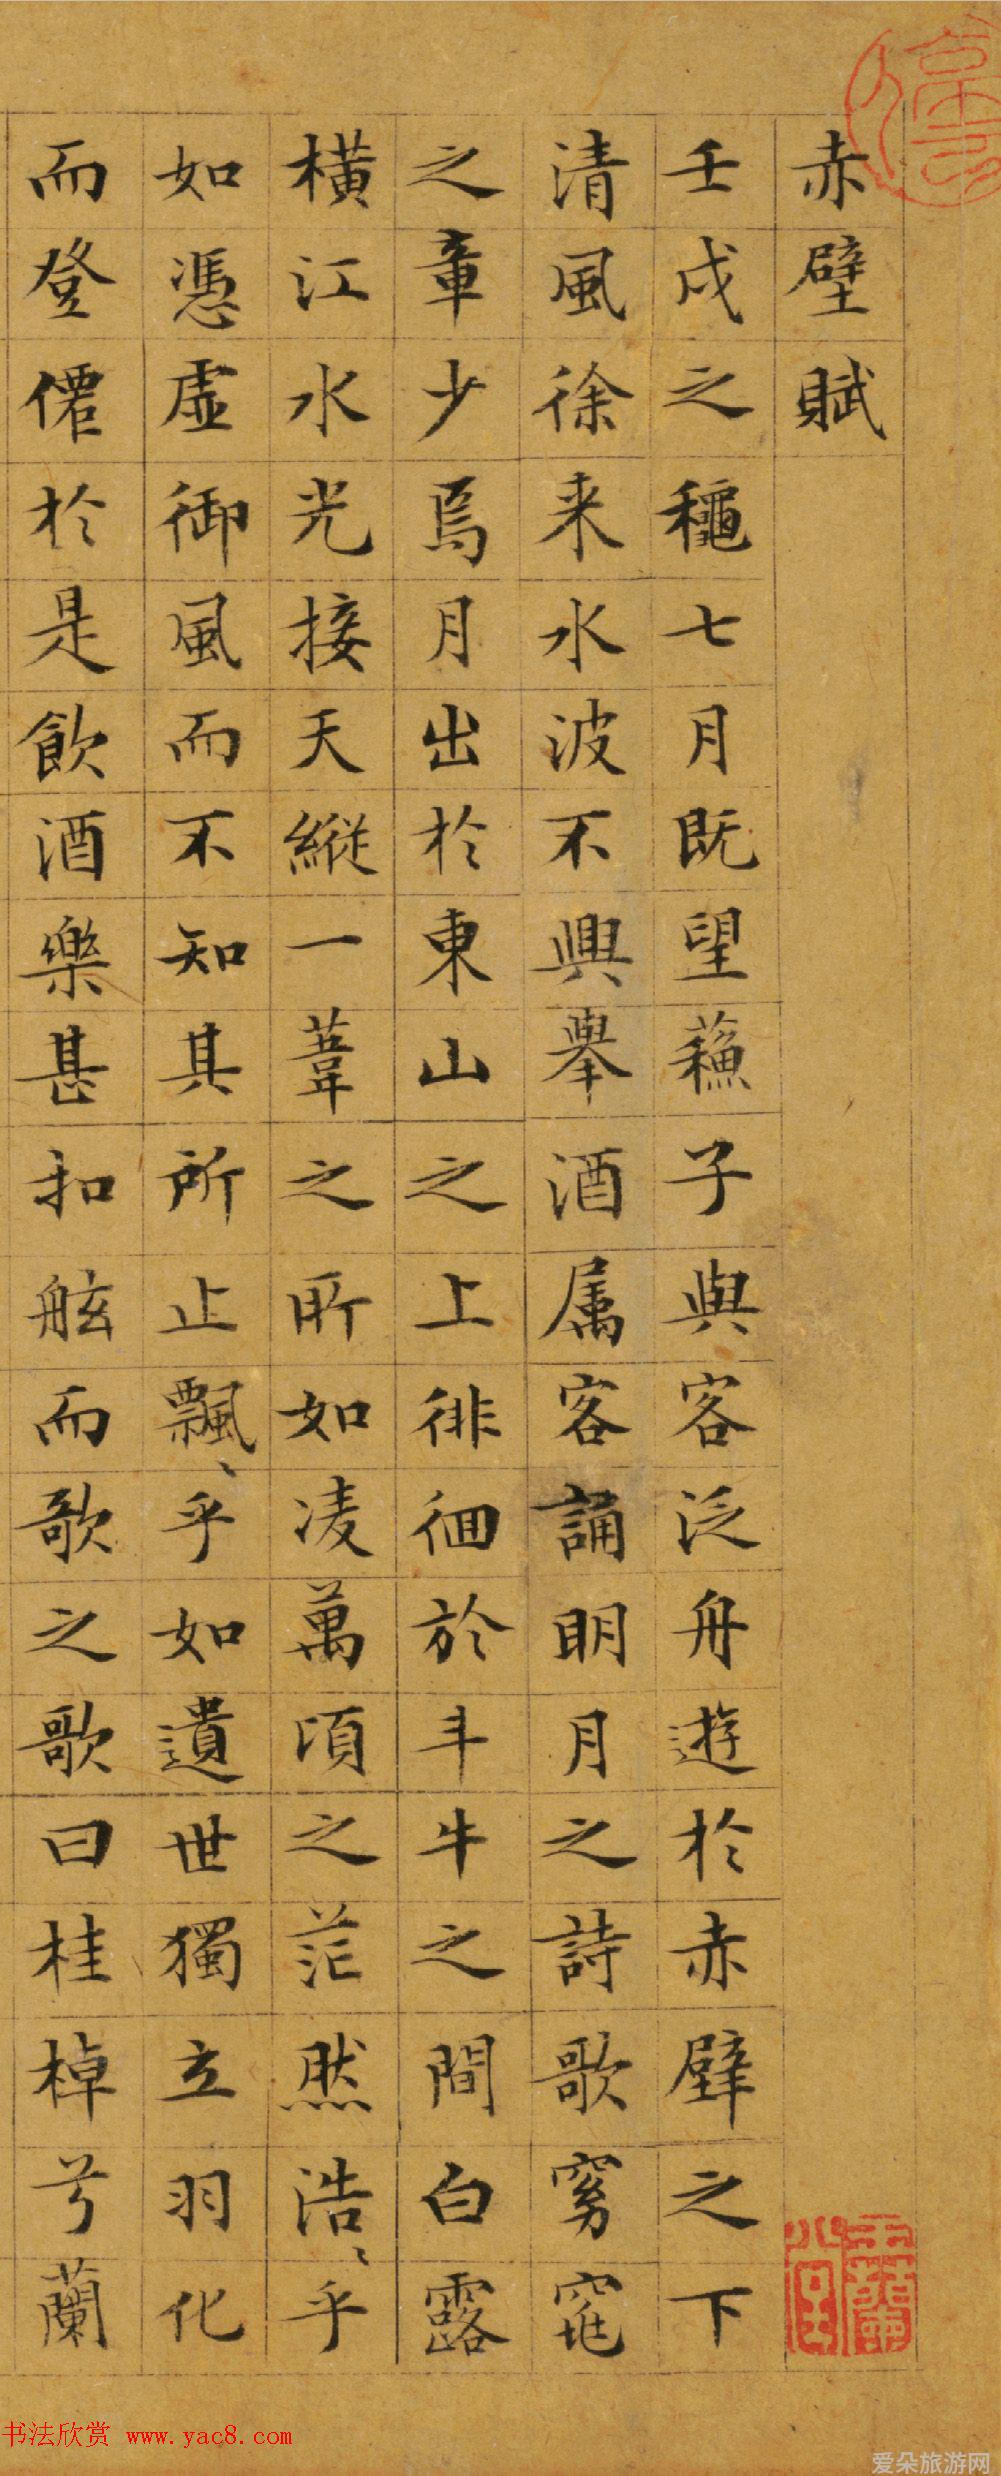 赤壁賦
壬戌之龝七月既望蘓子與客泛舟遊於赤壁之下
清風徐来水波不興舉酒属客誦明月之詩歌窈窕
之章少焉月出於東山之上徘徊於斗牛之間白露
橫江水光接天縱一葦之所如凌萬頃之茫然浩〻乎
如憑虛御風而不知其所止飄〻乎如遺世獨立羽化
而登僊於是飲酒樂甚扣舷而歌之歌曰桂棹兮蘭
书法欣赏 www.yac8.com
爱朵旅游网